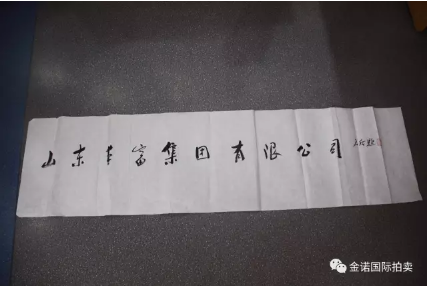 山东丰富集团有限公司
金诺国际拍卖